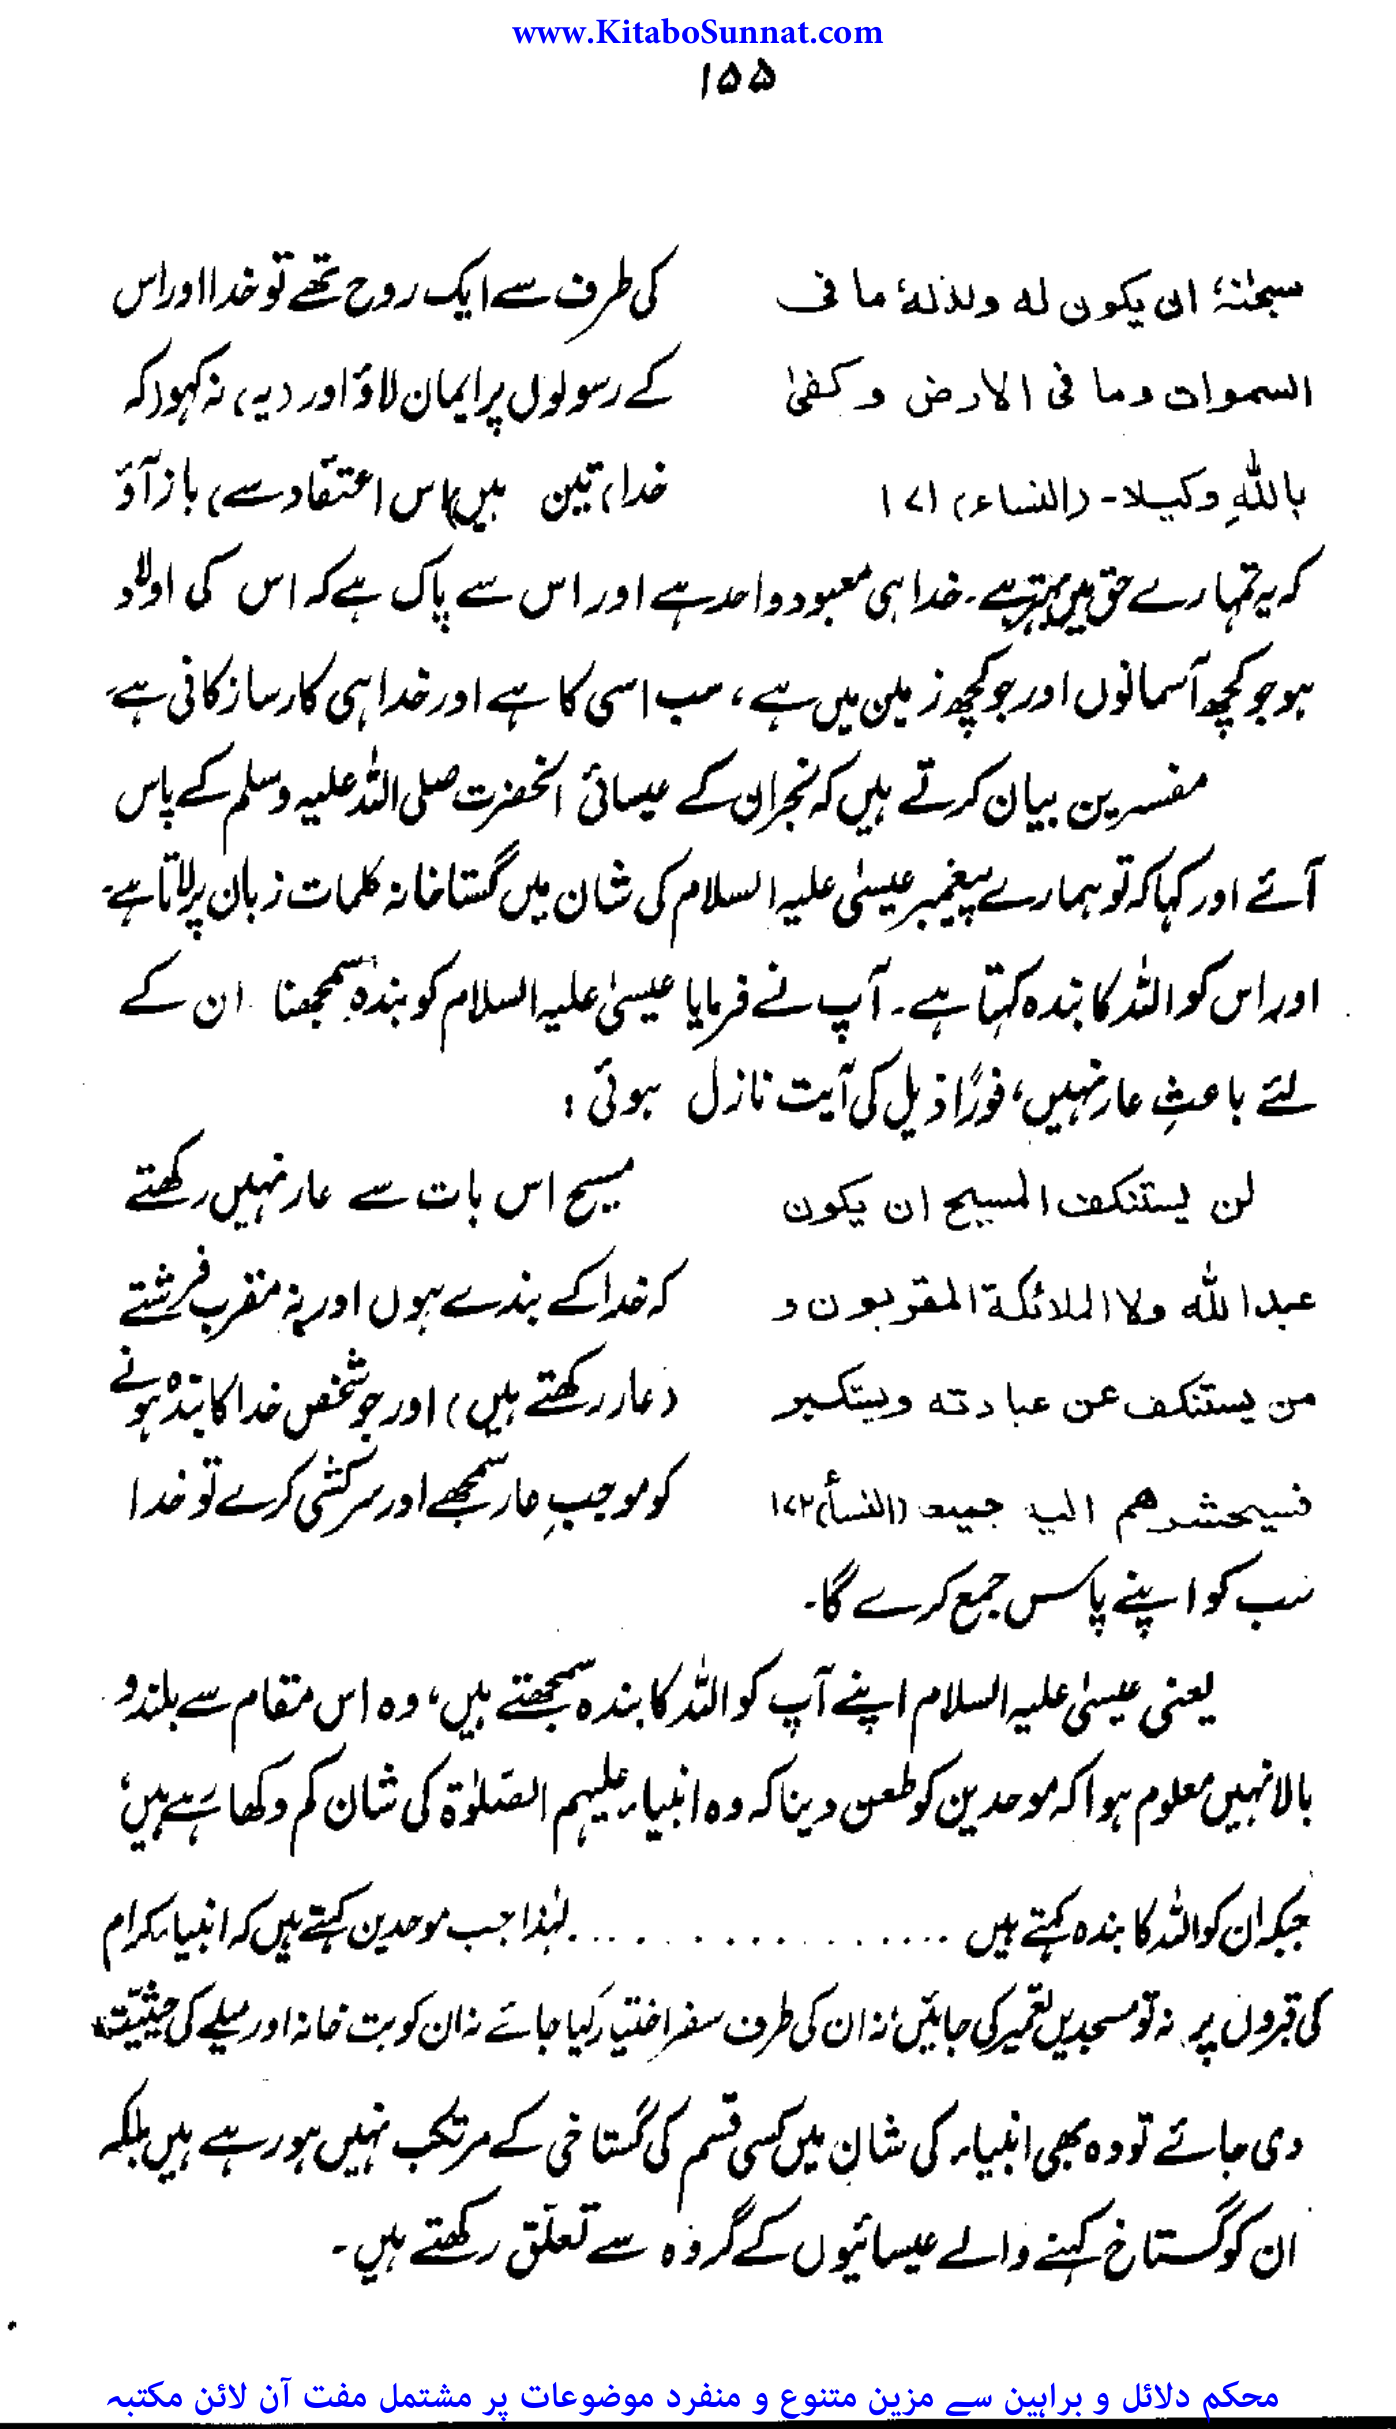 www.KitaboSunnat.com
۱۵۵
سبحٰنہٗ ان یکون لہ ولدلہٗ ما فی
کی طرف سے ایک روح تھے تو خدا اور اس
السموات وما فی الارض وکفیٰ
کے رسولوں پر ایمان لاؤ اور (یہ) نہ کہو (کہ
باللہِ وکیلا۔ (النساء) ۱۷۱
خدا) تین ہیں (اس اعتقاد سے) باز آؤ
کہ یہ تمہارے حق میں بہتر ہے۔ خدا ہی معبود واحد ہے اور اس سے پاک ہے کہ اس کی اولاد
ہو جو کچھ آسمانوں اور جو کچھ زمین میں ہے، سب اسی کا ہے اور خدا ہی کارساز کافی ہے
مفسرین بیان کرتے ہیں کہ نجران کے عیسائی آنحضرت صلی اللہ علیہ وسلم کے پاس
آئے اور کہا کہ تو ہمارے پیغمبر عیسیٰ علیہ السلام کی شان میں گستاخانہ کلمات زبان پر لاتا ہے۔
اور اس کو اللہ کا بندہ کہتا ہے۔ آپ نے فرمایا عیسیٰ علیہ السلام کو بندہ سمجھنا ان کے
لئے باعثِ عار نہیں، فورًا ذیل کی آیت نازل ہوئی :
لن یستنکف المسیح ان یکون
مسیح اس بات سے عار نہیں رکھتے
عبد اللہ ولا الملائکۃ المقربون و
کہ خدا کے بندے ہوں اور نہ مقرب فرشتے
من یستنکف عن عبادتہ ویستکبر
(عار رکھتے ہیں) اور جو شخص خدا کا بندہ ہونے
فسیحشرھم الیہ جمیعا (النسأ) ۱۷۲
کو موجبِ عار سمجھے اور سرکشی کرے تو خدا
سب کو اپنے پاس جمع کرے گا۔
یعنی عیسیٰ علیہ السلام اپنے آپ کو اللہ کا بندہ سمجھتے ہیں، وہ اس مقام سے بلند و
بالا نہیں معلوم ہوا کہ موحدین کو طعن دینا کہ وہ انبیاء علیہم الصّلوٰۃ کی شان کم دکھا رہے ہیں،
جبکہ ان کو اللہ کا بندہ کہتے ہیں ................. لہٰذا جب موحدین کہتے ہیں کہ انبیاء کرام
کی قبروں پر نہ تو مسجدیں تعمیر کی جائیں، نہ ان کی طرف سفر اختیار کیا جائے نہ ان کو بت خانہ اور میلے کی حیثیّت
دی جائے تو وہ بھی انبیاء کی شان میں کسی قسم کی گستاخی کے مرتکب نہیں ہو رہے ہیں بلکہ
ان کو گستاخ کہنے والے عیسائیوں کے گروہ سے تعلّق رکھتے ہیں۔
محکم دلائل و براہین سے مزین متنوع و منفرد موضوعات پر مشتمل مفت آن لائن مکتبہ